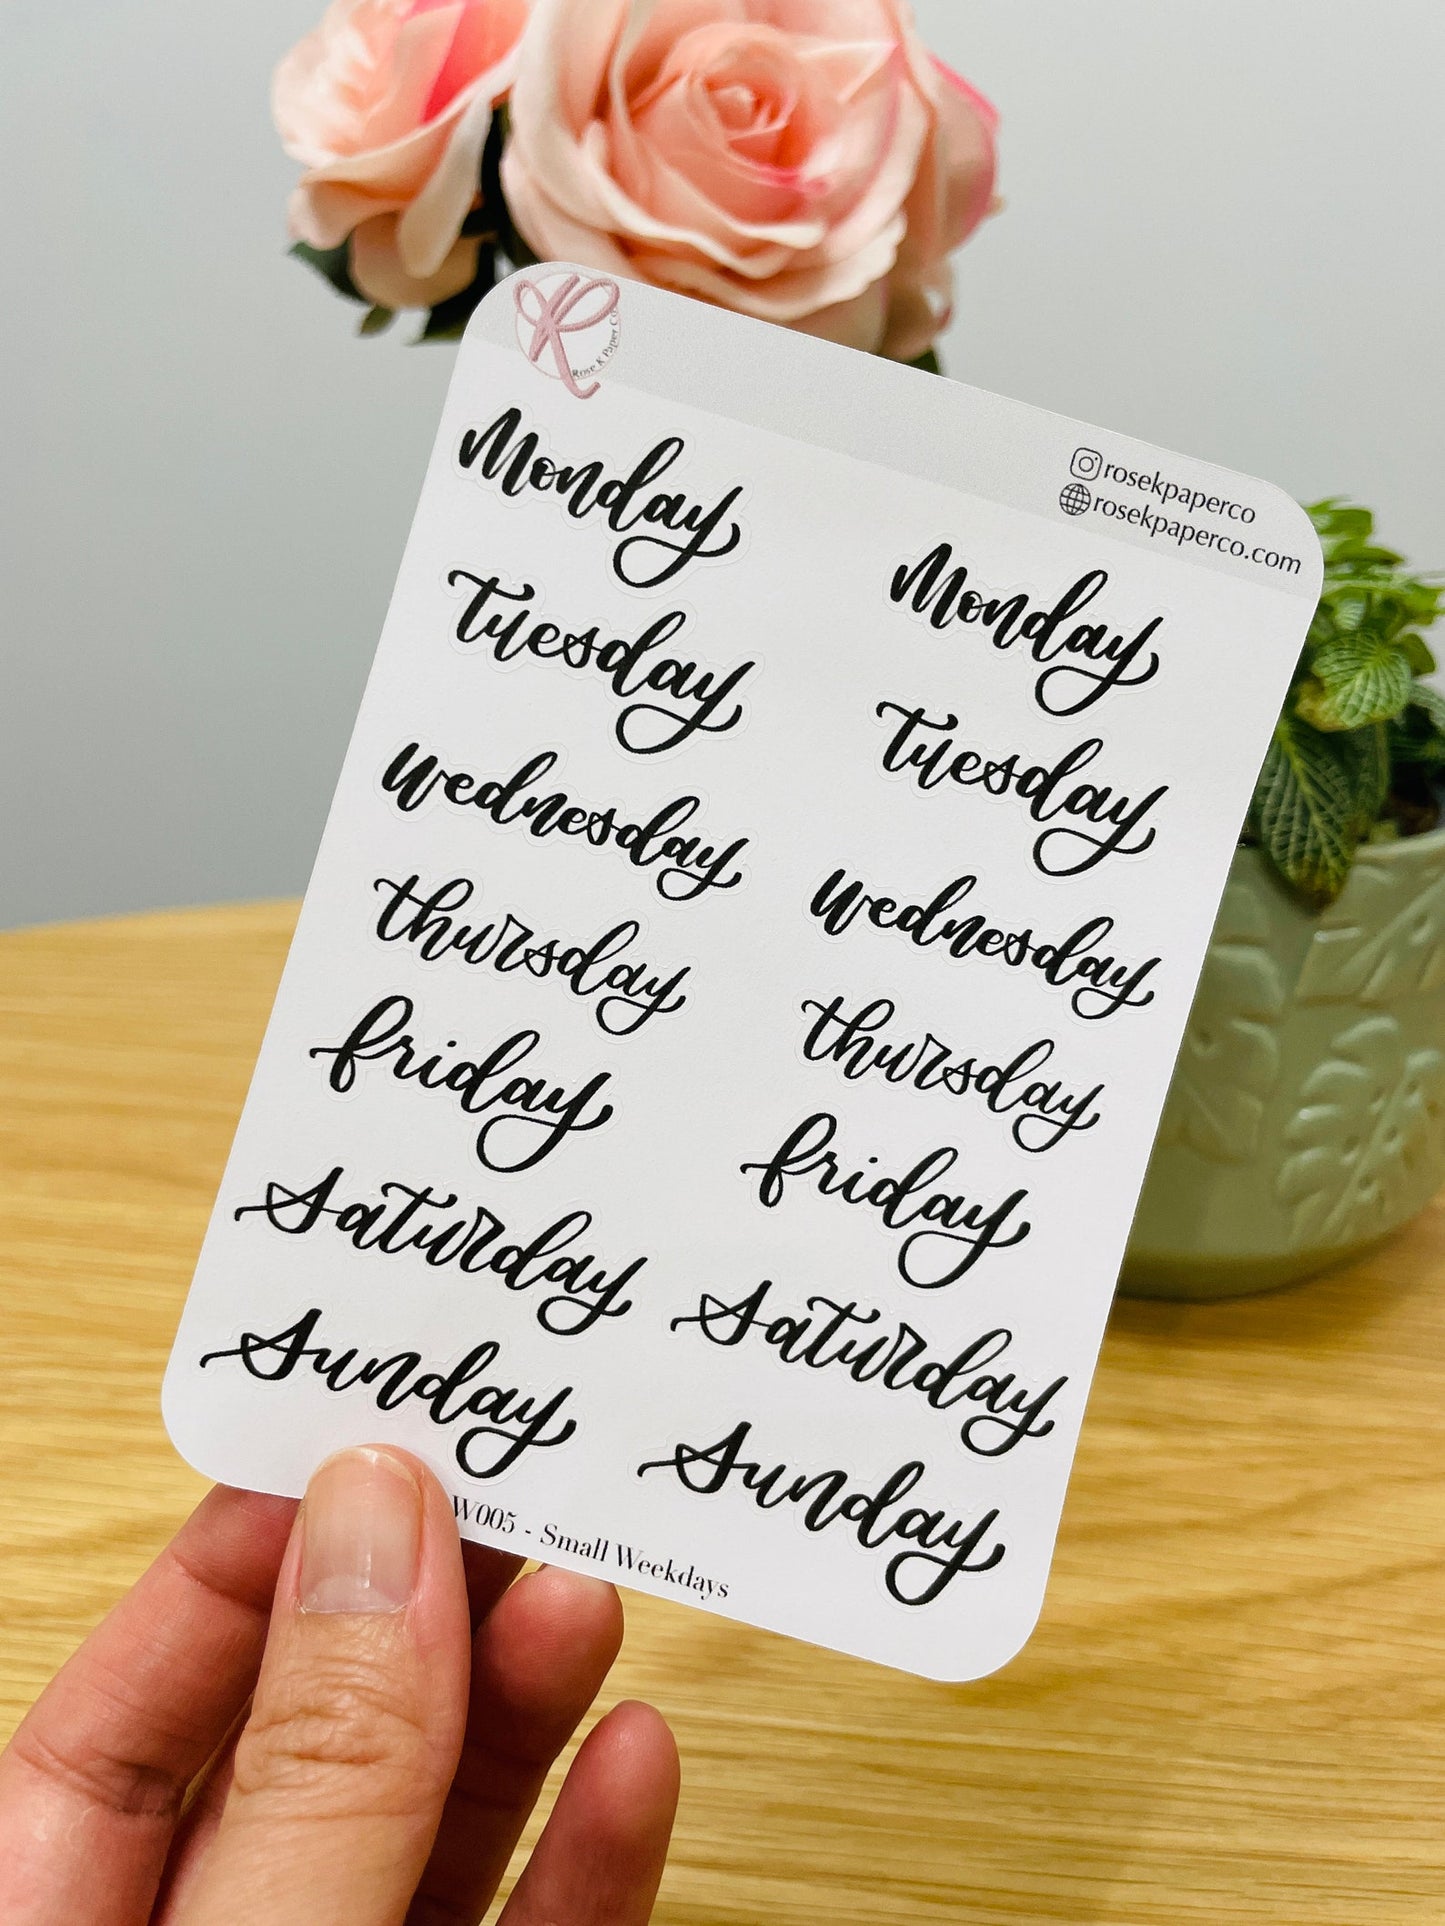 Rose K Paper Co
rosekpaperco
rosekpaperco.com
Monday
Tuesday
Wednesday
Thursday
Friday
Saturday
Sunday
Monday
Tuesday
Wednesday
Thursday
Friday
Saturday
Sunday
W005 - Small Weekdays